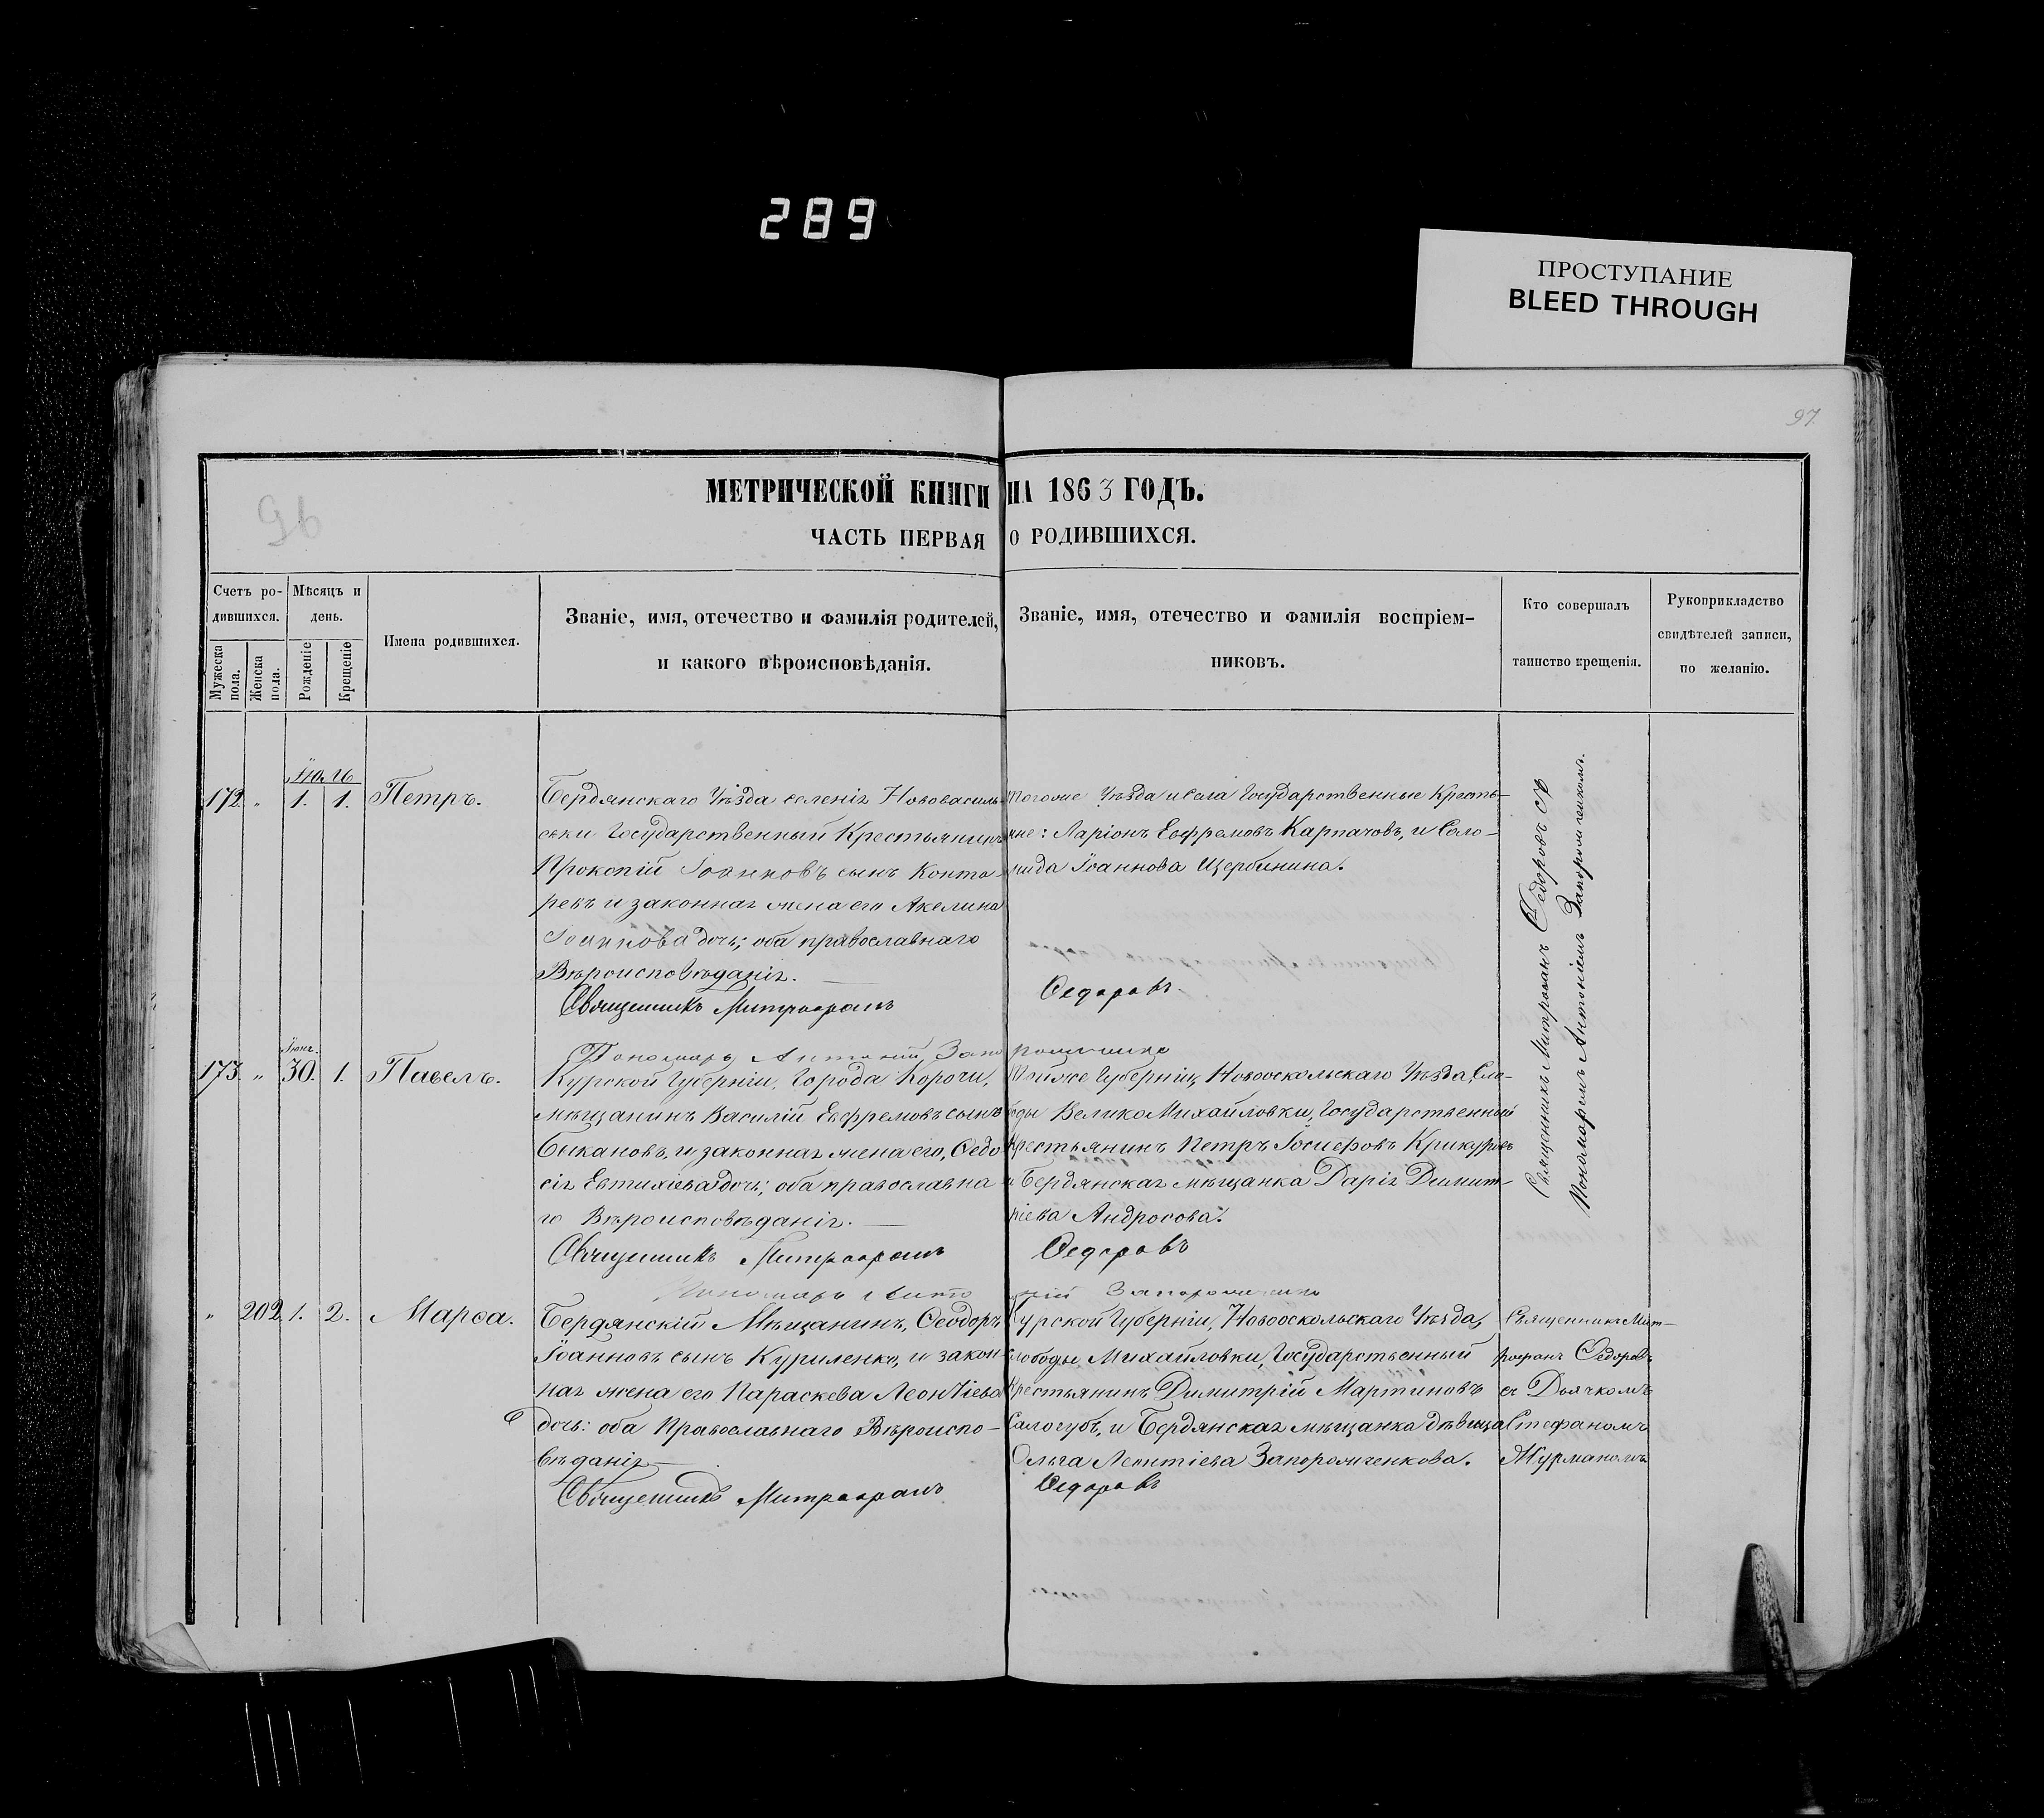 289
ПРОСТУПАНИЕ
BLEED THROUGH
97
96
МЕТРИЧЕСКОЙ КНИГИ НА 1863 ГОДЪ.
ЧАСТЬ ПЕРВАЯ О РОДИВШИХСЯ.
Счетъ ро-
дившихся.
Мужеска пола.
Женска пола.
Мѣсяцъ и
день.
Рожденіе
Крещеніе
Имена родившихся.
Званіе, имя, отечество и фамилія родителей,
и какого вѣроисповѣданія.
Званіе, имя, отечество и фамилія воспріем-
никовъ.
Кто совершалъ
таинство крещенія.
Рукоприкладство
свидѣтелей записи,
по желанію.
172 " 1. 1. Петръ.
Бердянскаго Уѣзда селенія Нововасиль-
евки Государственный Крестьянинъ
Прокопій Іоанновъ сынъ Конта-
ревъ и законная жена его Акелина
Іоаннова дочь; оба православнаго
Вѣроисповѣданія.
Тогоже Уѣзда и села Государственные Кресть-
яне: Ларіонъ Евфремовъ Карпачовъ, и Соло-
мида Іоаннова Щербинина.
Священникъ Митрофанъ Ѳедоровъ
Пономарь Антоній Запорожченко
173. " Іюня 30. 1. Павелъ.
Курской Губерніи, Города Корочи,
мѣщанинъ Василій Евфремовъ сынъ
Быкановъ, и законная жена его, Ѳедо-
сія Евтихіева дочь; оба православна-
го Вѣроисповѣданія.
Тойже Губерніи, Новооскольскаго Уѣзда, Сло-
боды ВеликоМихайловки, Государственный
Крестьянинъ Петръ Іосифовъ
и Бердянская мѣщанка Дарія Димит-
ріева Андросова.
Священникъ Митрофанъ Ѳедоровъ
Священникъ Митрофанъ Ѳедоровъ съ
Пономаремъ Антоніемъ Запорожченкомъ.
Пономарь Антоній Запорожченко
" 202 1. 2. Марѳа.
Бердянскій Мѣщанинъ, Ѳеодоръ
Іоанновъ сынъ Куриленко, и закон-
ная жена его Параскева Леонтіева
дочь: оба Православнаго Вѣроиспо-
вѣданія
Курской Губерніи, Новооскольскаго Уѣзда,
Слободы Михайловки, Государственный
Крестьянинъ Димитрій Мартиновъ
Салогубъ, и Бердянская мѣщанка дѣвица
Ольга Леонтіева Запорожченкова.
Священникъ Мит-
рофанъ Ѳедоровъ
съ Дьячкомъ
Стефаномъ
Журманомъ
Священникъ Митрофанъ Ѳедоровъ